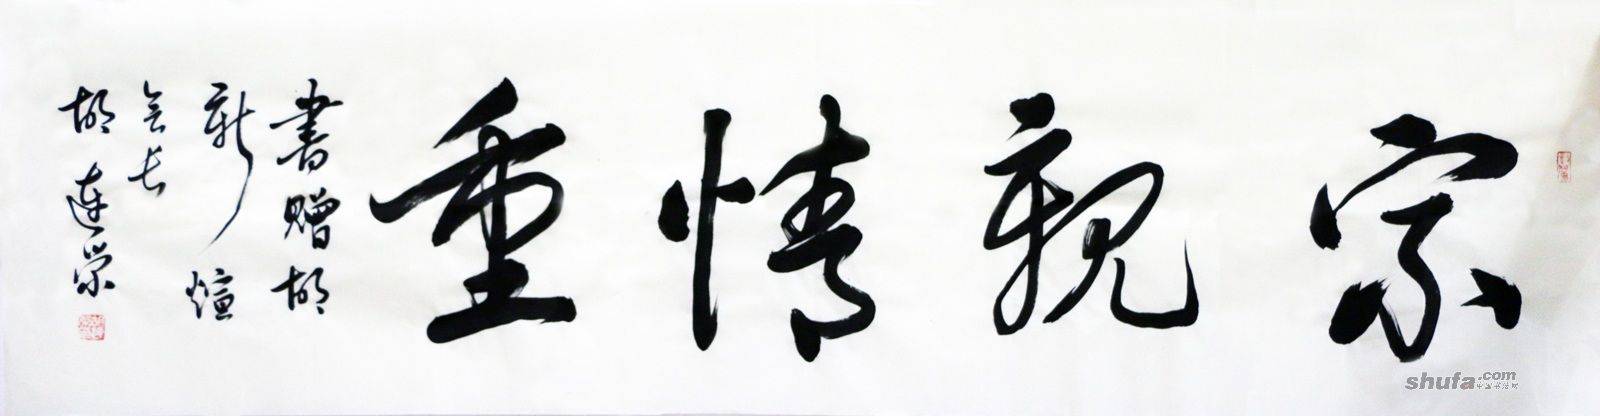 宗親情重
書贈胡
新煊
会长
胡連荣
shufa.com